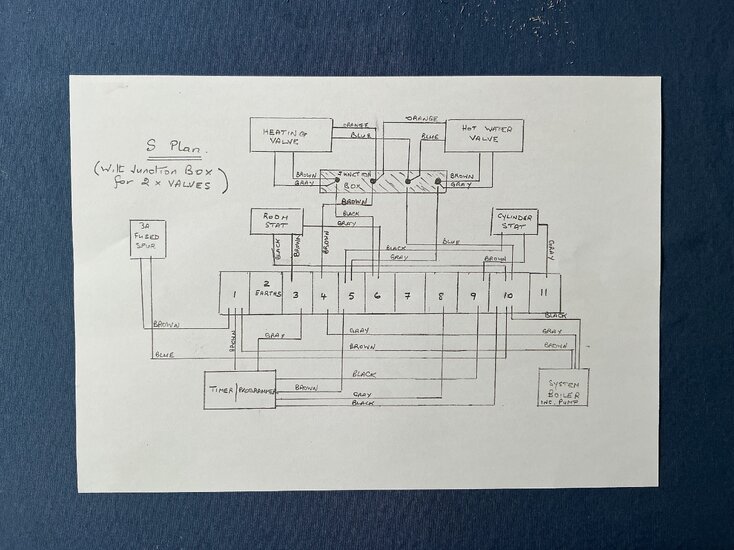 S Plan.
(With Junction Box
for 2 x VALVES)
HEATING
VALVE
ORANGE
BLUE
ORANGE
BLUE
HOT WATER
VALVE
BROWN
GRAY
JUNCTION
BOX
BROWN
GRAY
3A
FUSED
SPUR
ROOM
STAT
BROWN
BLACK
GRAY
CYLINDER
STAT
BLACK
BROWN
BROWN
BLACK
GRAY
BLUE
BROWN
GRAY
1
2
EARTHS
3
4
5
6
7
8
9
10
11
BROWN
BLUE
BROWN
GRAY
GRAY
BROWN
BLACK
GRAY
BROWN
TIMER/PROGRAMMER
BROWN
BLACK
GRAY
BLACK
SYSTEM
BOILER
INC. PUMP